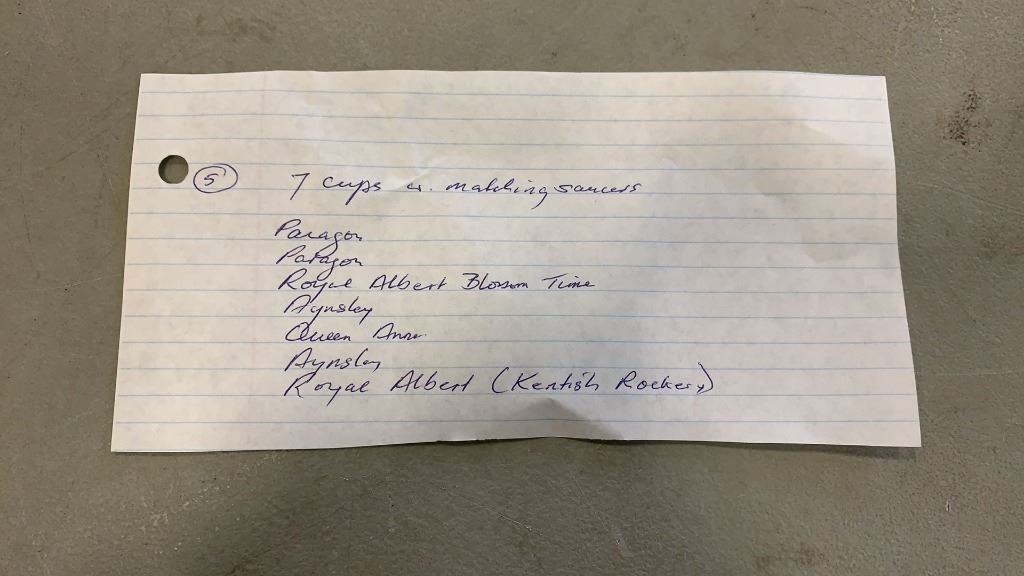 5 7 cups w. matching saucers
Paragon
Paragon
Royal Albert Blossom Time
Aynsley
Queen Anne
Aynsley
Royal Albert (Kentish Rockery)